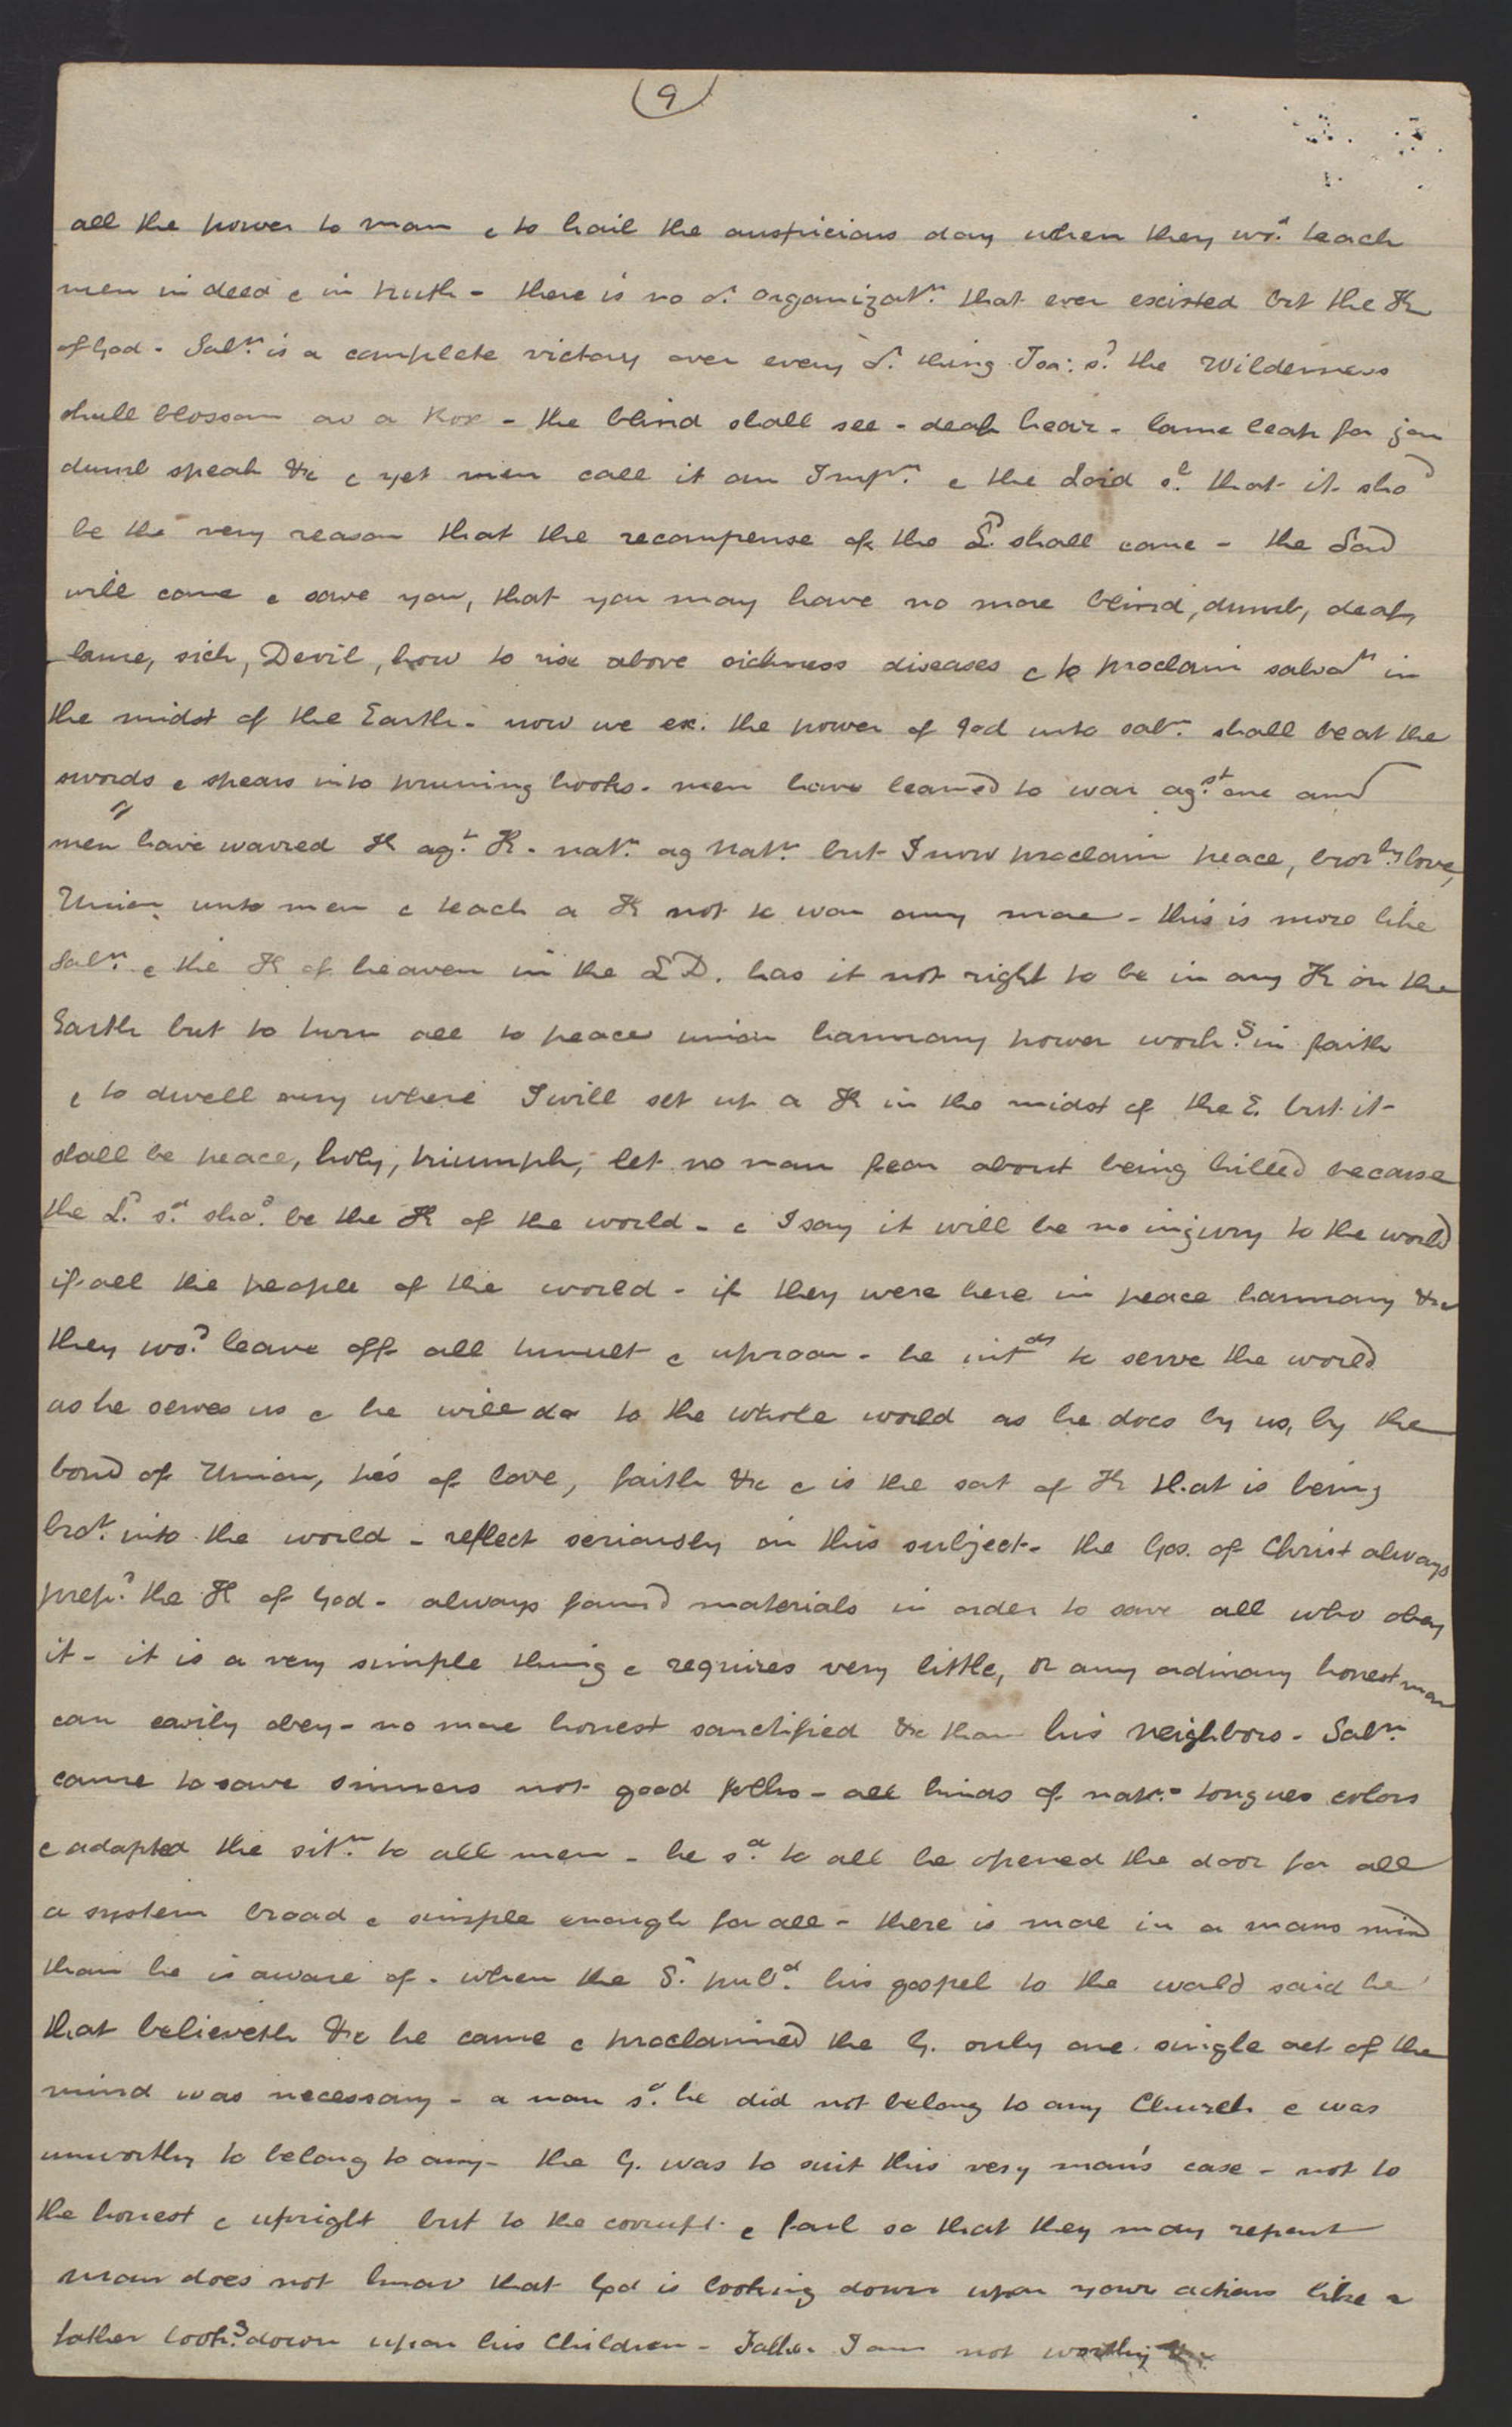 (9)
all the power to man & to hail the auspicious day when they wod. teach
men in deed & in truth - there is no or. organizatn. that ever existed but the K
of God - Saln. is a complete victory over every or. thing Isa: sd. the Wilderness
shall blossom as a Rose - the blind shall see - deaf hear - lame leap for joy
dumb speak &c & yet men call it an Impn. & the Lord sd. that it shod
be the very reason that the recompense of the Ld. shall come - the Lord
will come & save you, that you may have no more blind, dumb, deaf,
lame, sick, Devil, how to rise above sickness diseases & to proclaim salvatn in
the midst of the Earth - now we ex: the power of God unto saln. shall beat the
swords & spears into pruning hooks - men have learned to war agst. one anor
men have warred K agt. K - natn. ag natn. but I now proclaim peace, brorly. love,
Union unto men & teach a K not to war any more - this is more like
Saln. & the K of heaven in the L D. has it not right to be in any K on the
Earth but to turn all to peace union harmony power workg. in faith
& to dwell every where I will set up a K in the midst of the E. but it
shall be peace, holy, triumph, let no man fear about being killed because
the Ld. sd. shod. be the K of the world - & I say it will be no injury to the world
if all the people of the world - if they were here in peace harmony &c
they wod. leave off all tumult & uproar - he intds to serve the world
as he serves us & he will do to the whole world as he does by us, by the
bond of Union, ties of love, faith &c & is the sort of K that is being
brot. into the world - reflect seriously on this subject - the Gos. of Christ always
prepd. the K of God - always found materials in order to save all who obey
it - it is a very simple thing & requires very little, or any ordinary honest man
can easily obey - no more honest sanctified &c than his neighbors - Saln.
came to save sinners not good folks - all kinds of natns. tongues colors
& adapted the sitn. to all men - he sd. to all he opened the door for all
a system broad & simple enough for all - there is more in a mans mind
than he is aware of - when the S. pubd. his gospel to the world said he
that believeth &c he came & proclaimed the G. only one single act of the
mind was necessary - a man sd. he did not belong to any Church & was
unworthy to belong to any - the G. was to suit this very man's case - not to
the honest & upright but to the corrupt & foul so that they may repent
man does not know that God is looking down upon your actions like a
father lookg. down upon his Children - Father I am not worthy &c